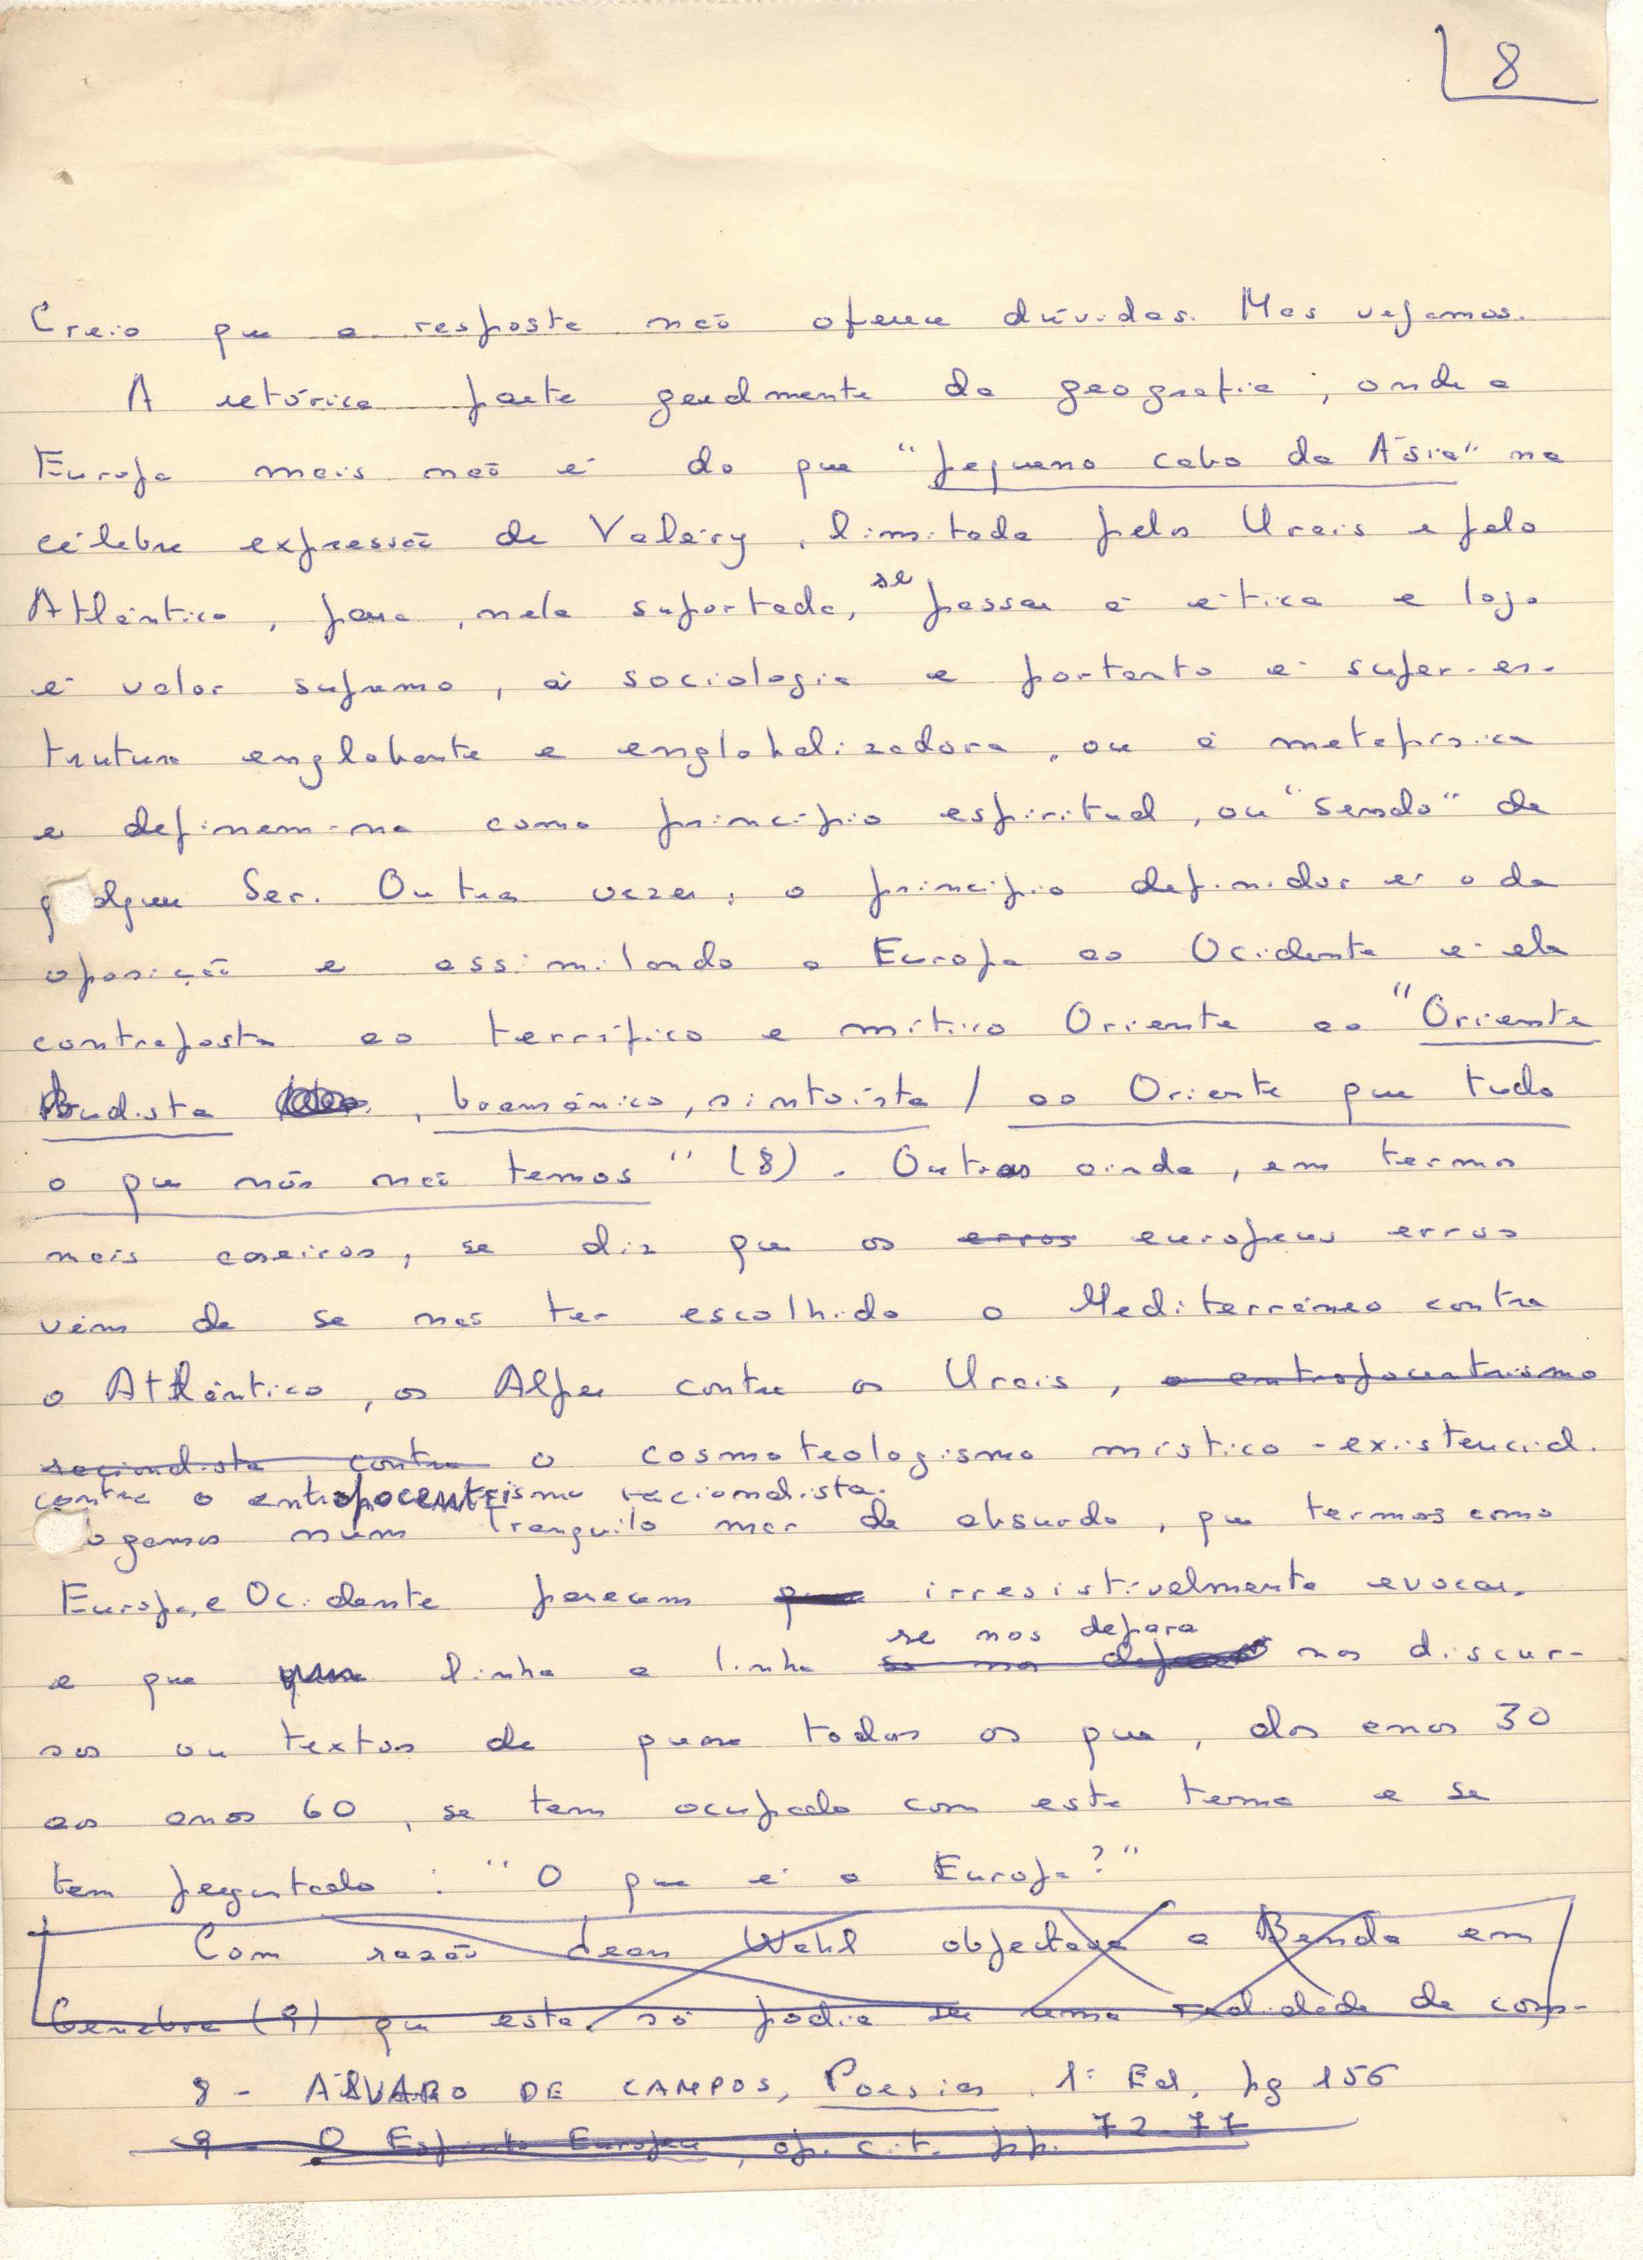 8
Creio que a resposta não oferece dúvidas. Mas vejamos.
A retórica parte geralmente da geografia, onde a
Europa mais não é do que "pequeno cabo da Ásia" na
célebre expressão de Valéry, limitada pelos Urais e pelo
Atlântico, para, nela suportada, se passar à ética e logo
é valor supremo, à sociologia e portanto é super-es-
trutura englobante e englobalizadora, ou à metafísica
e definem-na como princípio espiritual, ou "sendo" de
qualquer Ser. Outras vezes, o princípio definidor é o da
oposição e assimilando a Europa ao Ocidente é ela
contraposta ao terrífico e mítico Oriente ao "Oriente
Budista, bramânico, sintoísta / ao Oriente que tudo
o que nós não temos" (8). Outras ainda, em termos
mais caseiros, se diz que os erros europeus erros
vêm de se não ter escolhido o Mediterrâneo contra
o Atlântico, os Alpes contra os Urais, o antropocentrismo
racionalista contra o cosmoteologismo místico-existencial.
contra o antropocentrismo racionalista.
ogamos num tranquilo mar de absurdo, que termos como
Europa e Ocidente parecem irresistivelmente evocar,
se nos depara
e que linha a linha se nos depara nos discur-
sos ou textos de quase todos os que, dos anos 30
aos anos 60, se tem ocupado com este tema e se
tem perguntado: "O que é a Europa?"
Com razão Jean Wahl objectava a Benda em
Genebra (9) que esta só podia ser uma realidade de com-
8 - ÁLVARO DE CAMPOS, Poesias, 1ª Ed, pg 156
9 - O Espírito Europeu, op. cit. pp. 72-77